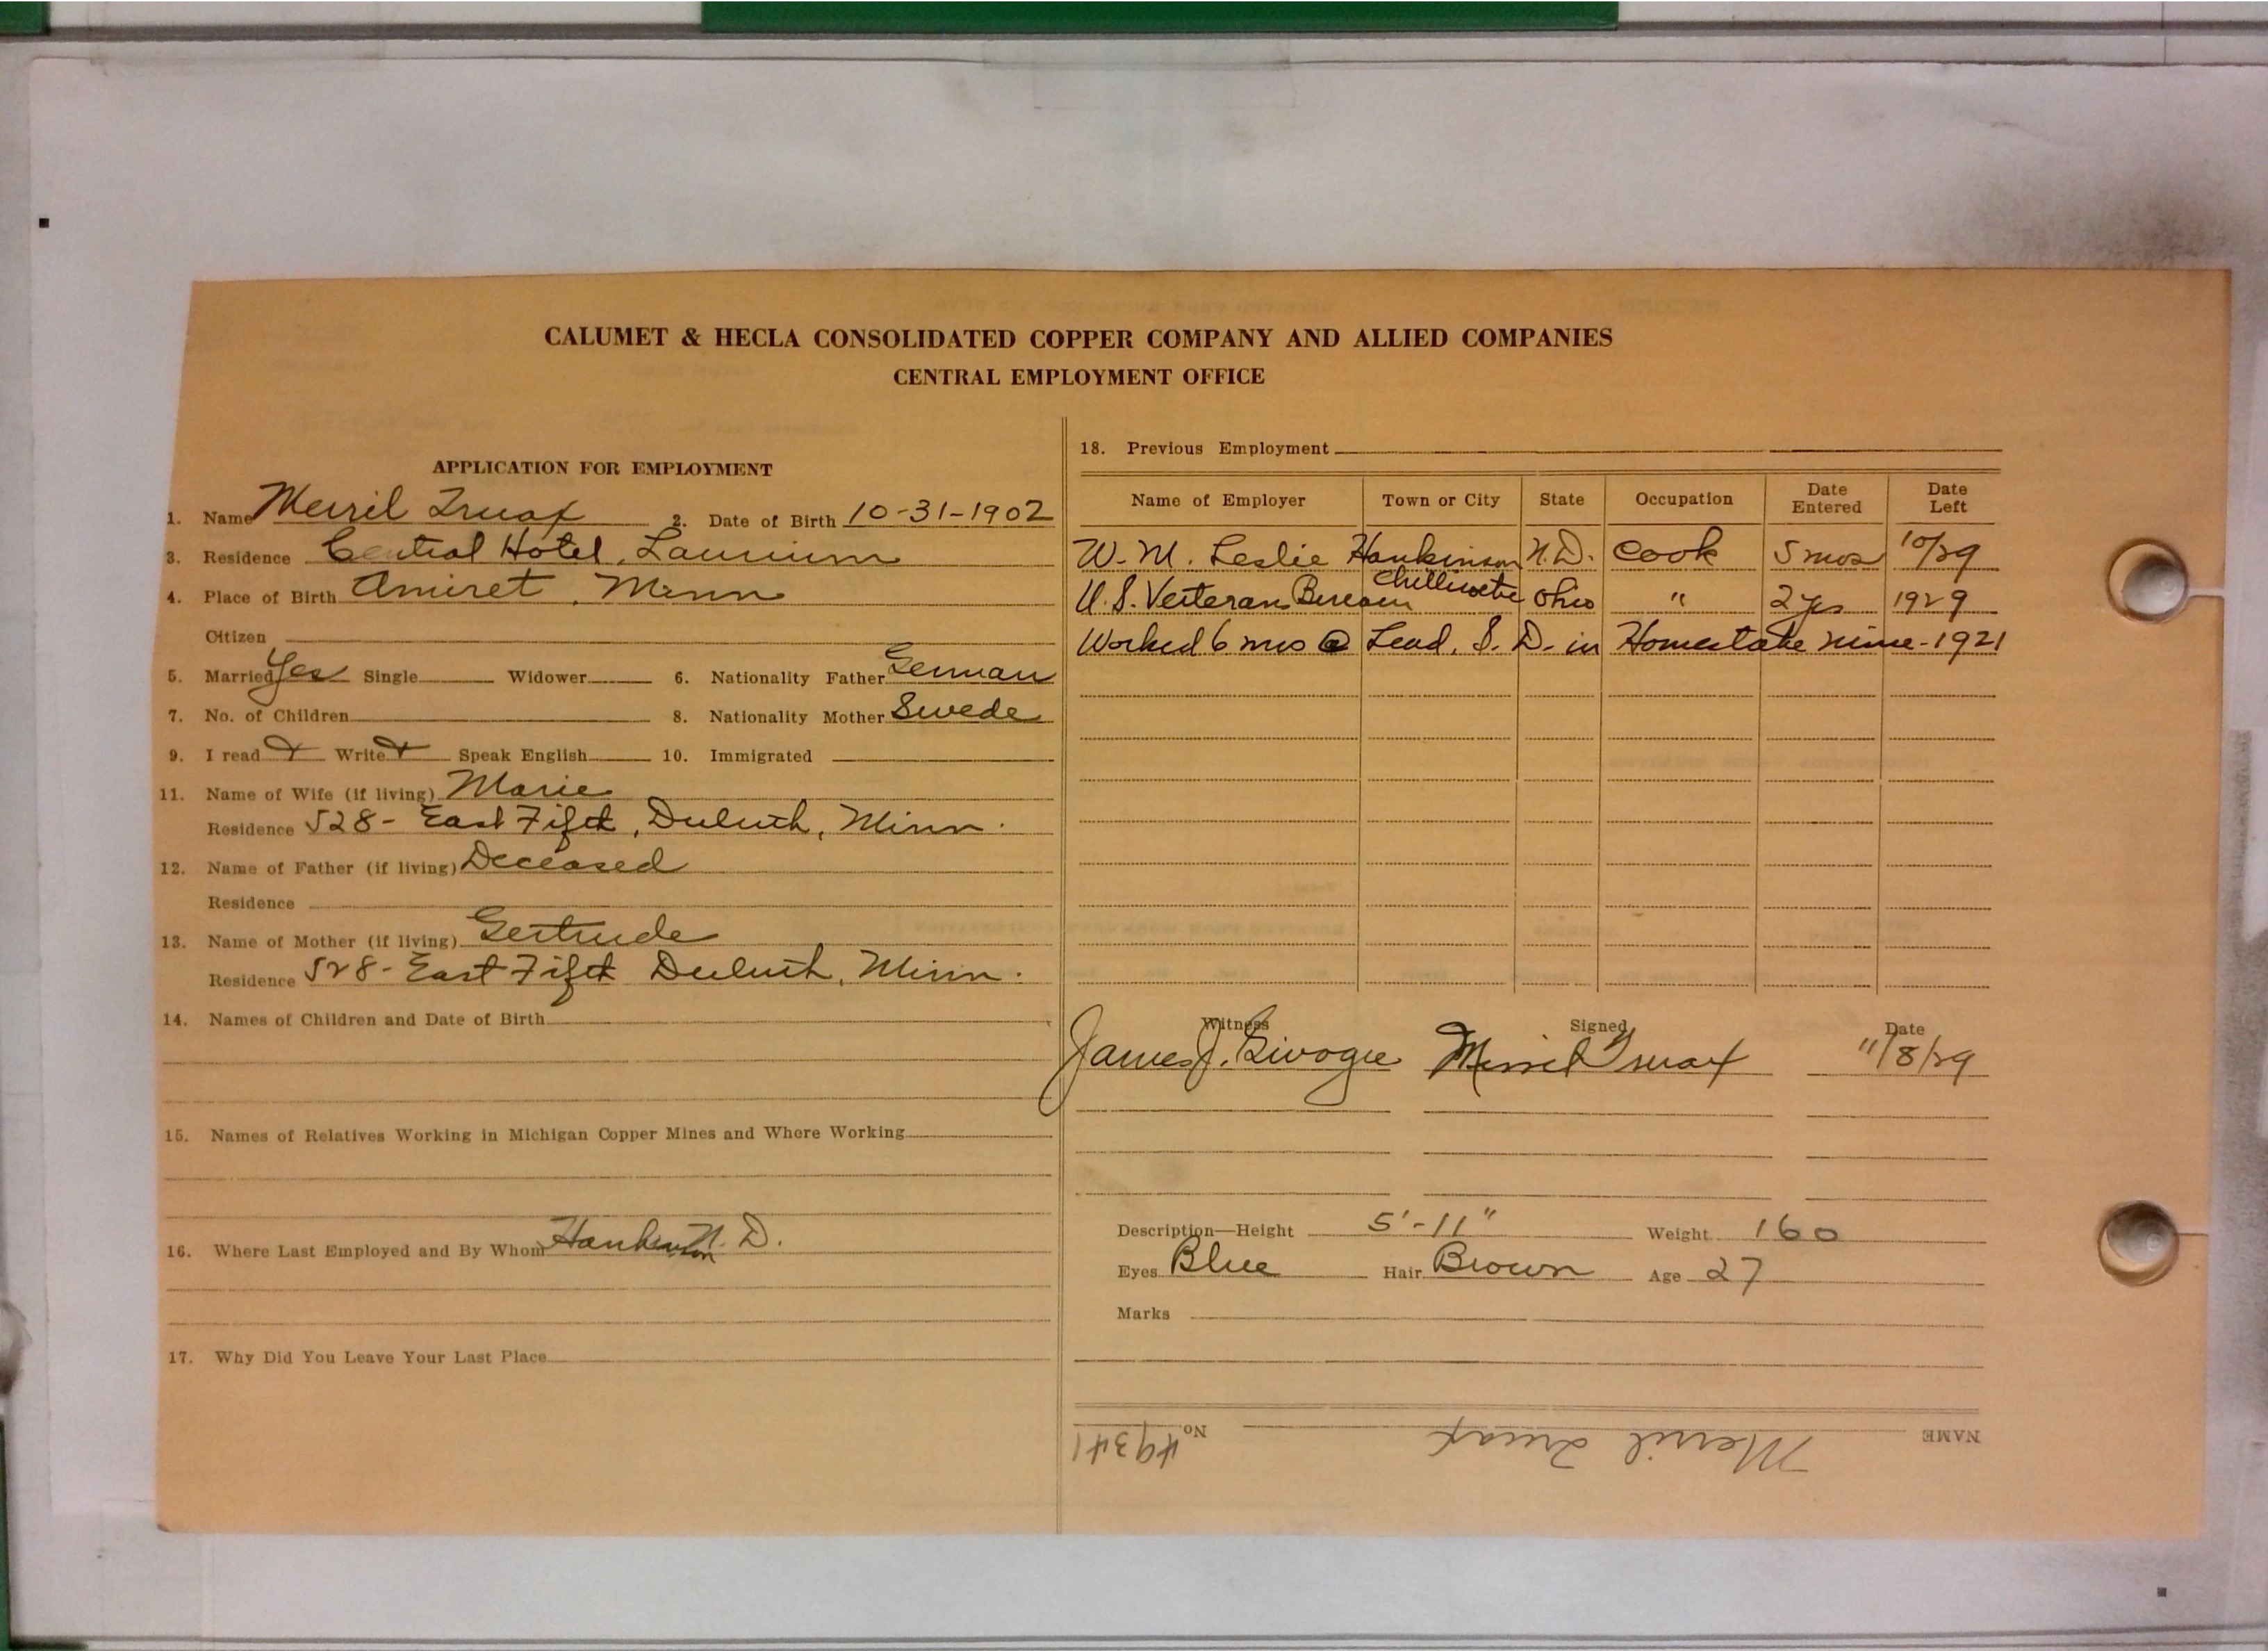 CALUMET & HECLA CONSOLIDATED COPPER COMPANY AND ALLIED COMPANIES
CENTRAL EMPLOYMENT OFFICE
APPLICATION FOR EMPLOYMENT
1. Name Merril Truax 2. Date of Birth 10-31-1902
3. Residence Central Hotel, Laurium
4. Place of Birth Amiret, Minn
Citizen
5. Married Yes Single Widower 6. Nationality Father German
7. No. of Children 8. Nationality Mother Swede
9. I read Write Speak English 10. Immigrated
11. Name of Wife (if living) Marie
Residence 528- East Fifth, Duluth, Minn.
12. Name of Father (if living) Deceased
Residence
13. Name of Mother (if living) Gertrude
Residence 528- East Fifth Duluth, Minn.
14. Names of Children and Date of Birth
15. Names of Relatives Working in Michigan Copper Mines and Where Working
16. Where Last Employed and By Whom Hankinson N. D.
17. Why Did You Leave Your Last Place
18. Previous Employment
Name of Employer Town or City State Occupation Date Entered Date Left
W. M. Leslie Hankinson N.D. Cook 5 mos 10/29
U.S. Veteran Bureau Chillicothe Ohio " 2 yrs 1929
Worked 6 mos @ Lead, S. D. in Homestake mine - 1921
Witness Signed Date
James J. Merril Truax 11/8/29
Description—Height 5'-11" Weight 160
Eyes Blue Hair Brown Age 27
Marks
NAME Merril Truax No. 49341